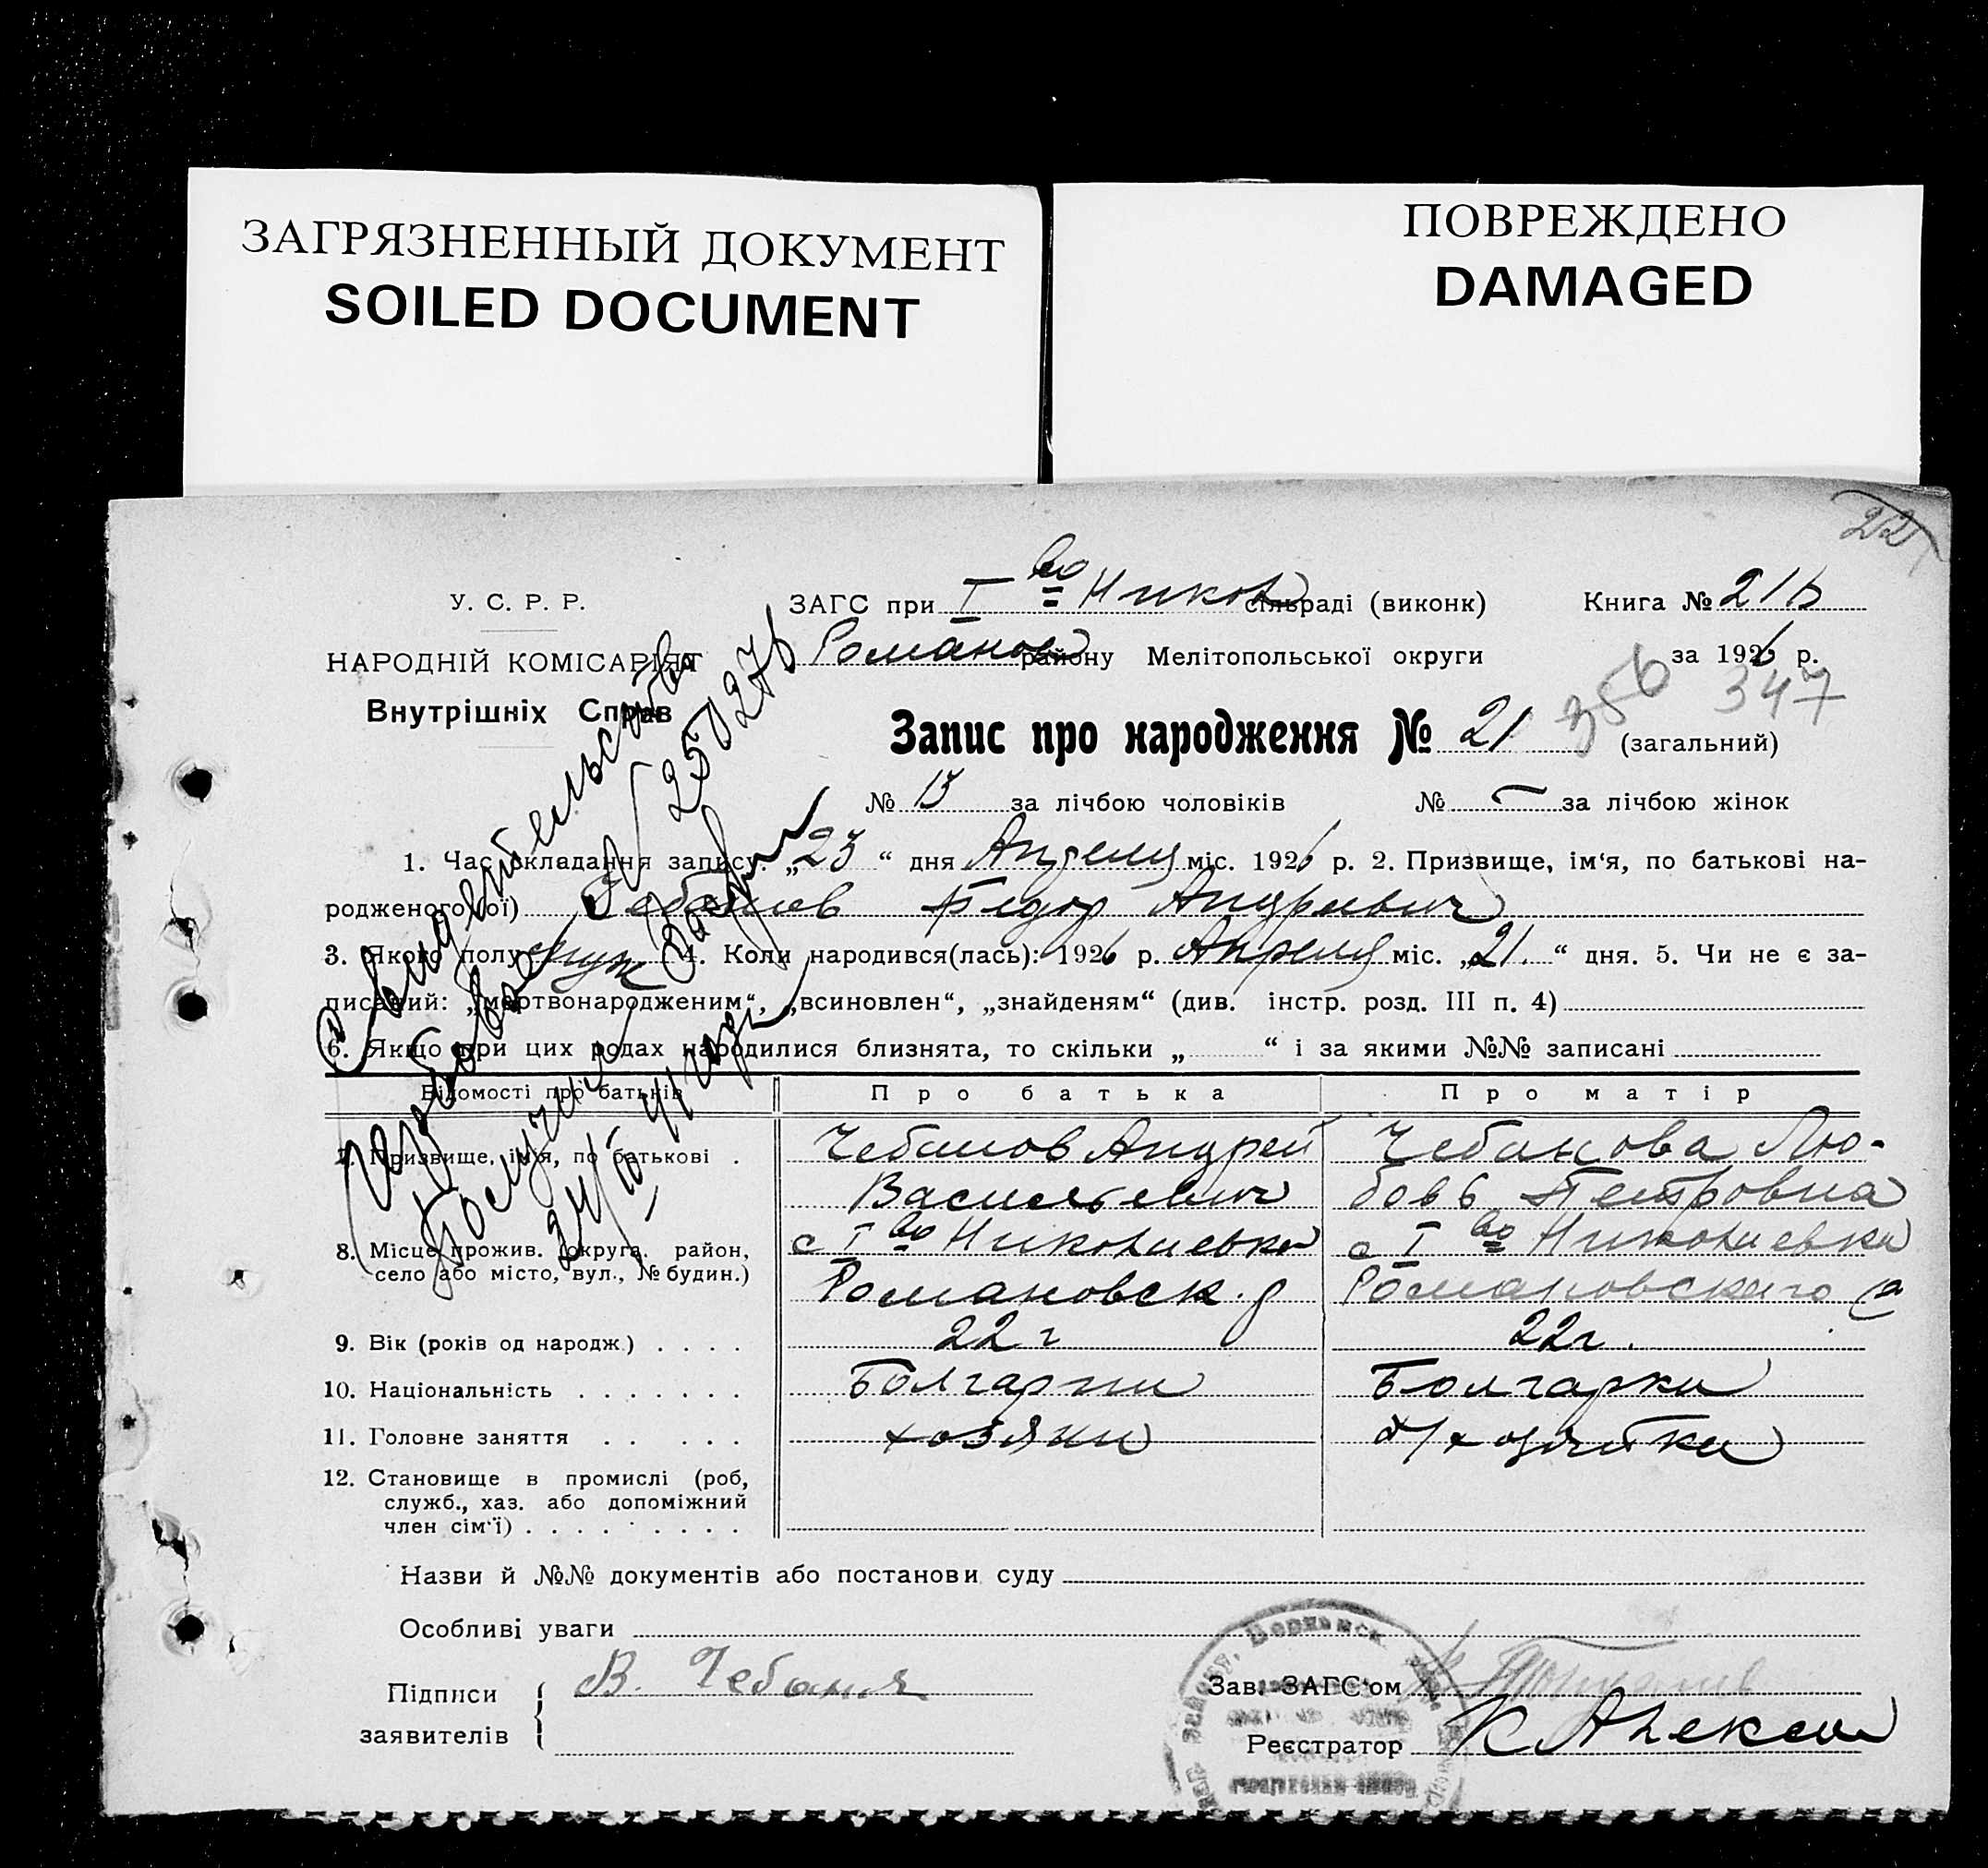 ЗАГРЯЗНЕННЫЙ ДОКУМЕНТ
SOILED DOCUMENT
ПОВРЕЖДЕНО
DAMAGED
22
У. С. Р. Р.
НАРОДНІЙ КОМІСАРІЯТ
Внутрішніх Справ
ЗАГС при І во Никол сільраді (виконк) Книга № 216
Романов району Мелітопольської округи за 1926 р.
356 347
Запис про народження № 21 (загальний)
№ 13 за лічбою чоловіків № — за лічбою жінок
1. Час складання запису: „23“ дня Апреля міс. 1926 р. 2. Призвище, ім‘я, по батькові на-
родженого(ої) Чебанов Федор Андреевич
3. Якого полу муж 4. Коли народився(лась): 1926 р. Апреля міс. „21.“ дня. 5. Чи не є за-
писаний: „мертвонародженим“, „всиновлен“, „знайденям“ (див. інстр. розд. III п. 4)
6. Якщо при цих родах народилися близнята, то скільки „ “ і за якими №№ записані
Свидетельство
250276
Получил
24/10 41 года
Відомості про батьків Про батька Про матір
7. Призвище, ім‘я, по батькові . Чебанов Андрей Чебанова Лю-
Васильевич бовь Петровна
8. Місце прожив. (округа, район, с І во Николаевка с І во Николаевка
село або місто, вул., № будин.) Романовск. р Романовского р
9. Вік (років од народж.) . . . . 22 г 22 г.
10. Національність . . . . . . . Болгарин Болгарка
11. Головне заняття . . . . . хозяин д/хозяйка
12. Становище в промислі (роб,
служб., хаз. або допоміжний
член сім‘ї) . . . . . . . . .
Назви й №№ документів або постанови суду
Особливі уваги
Підписи В. Чебаня Зав. ЗАГС‘ом
заявителів Реєстратор К Алексеи